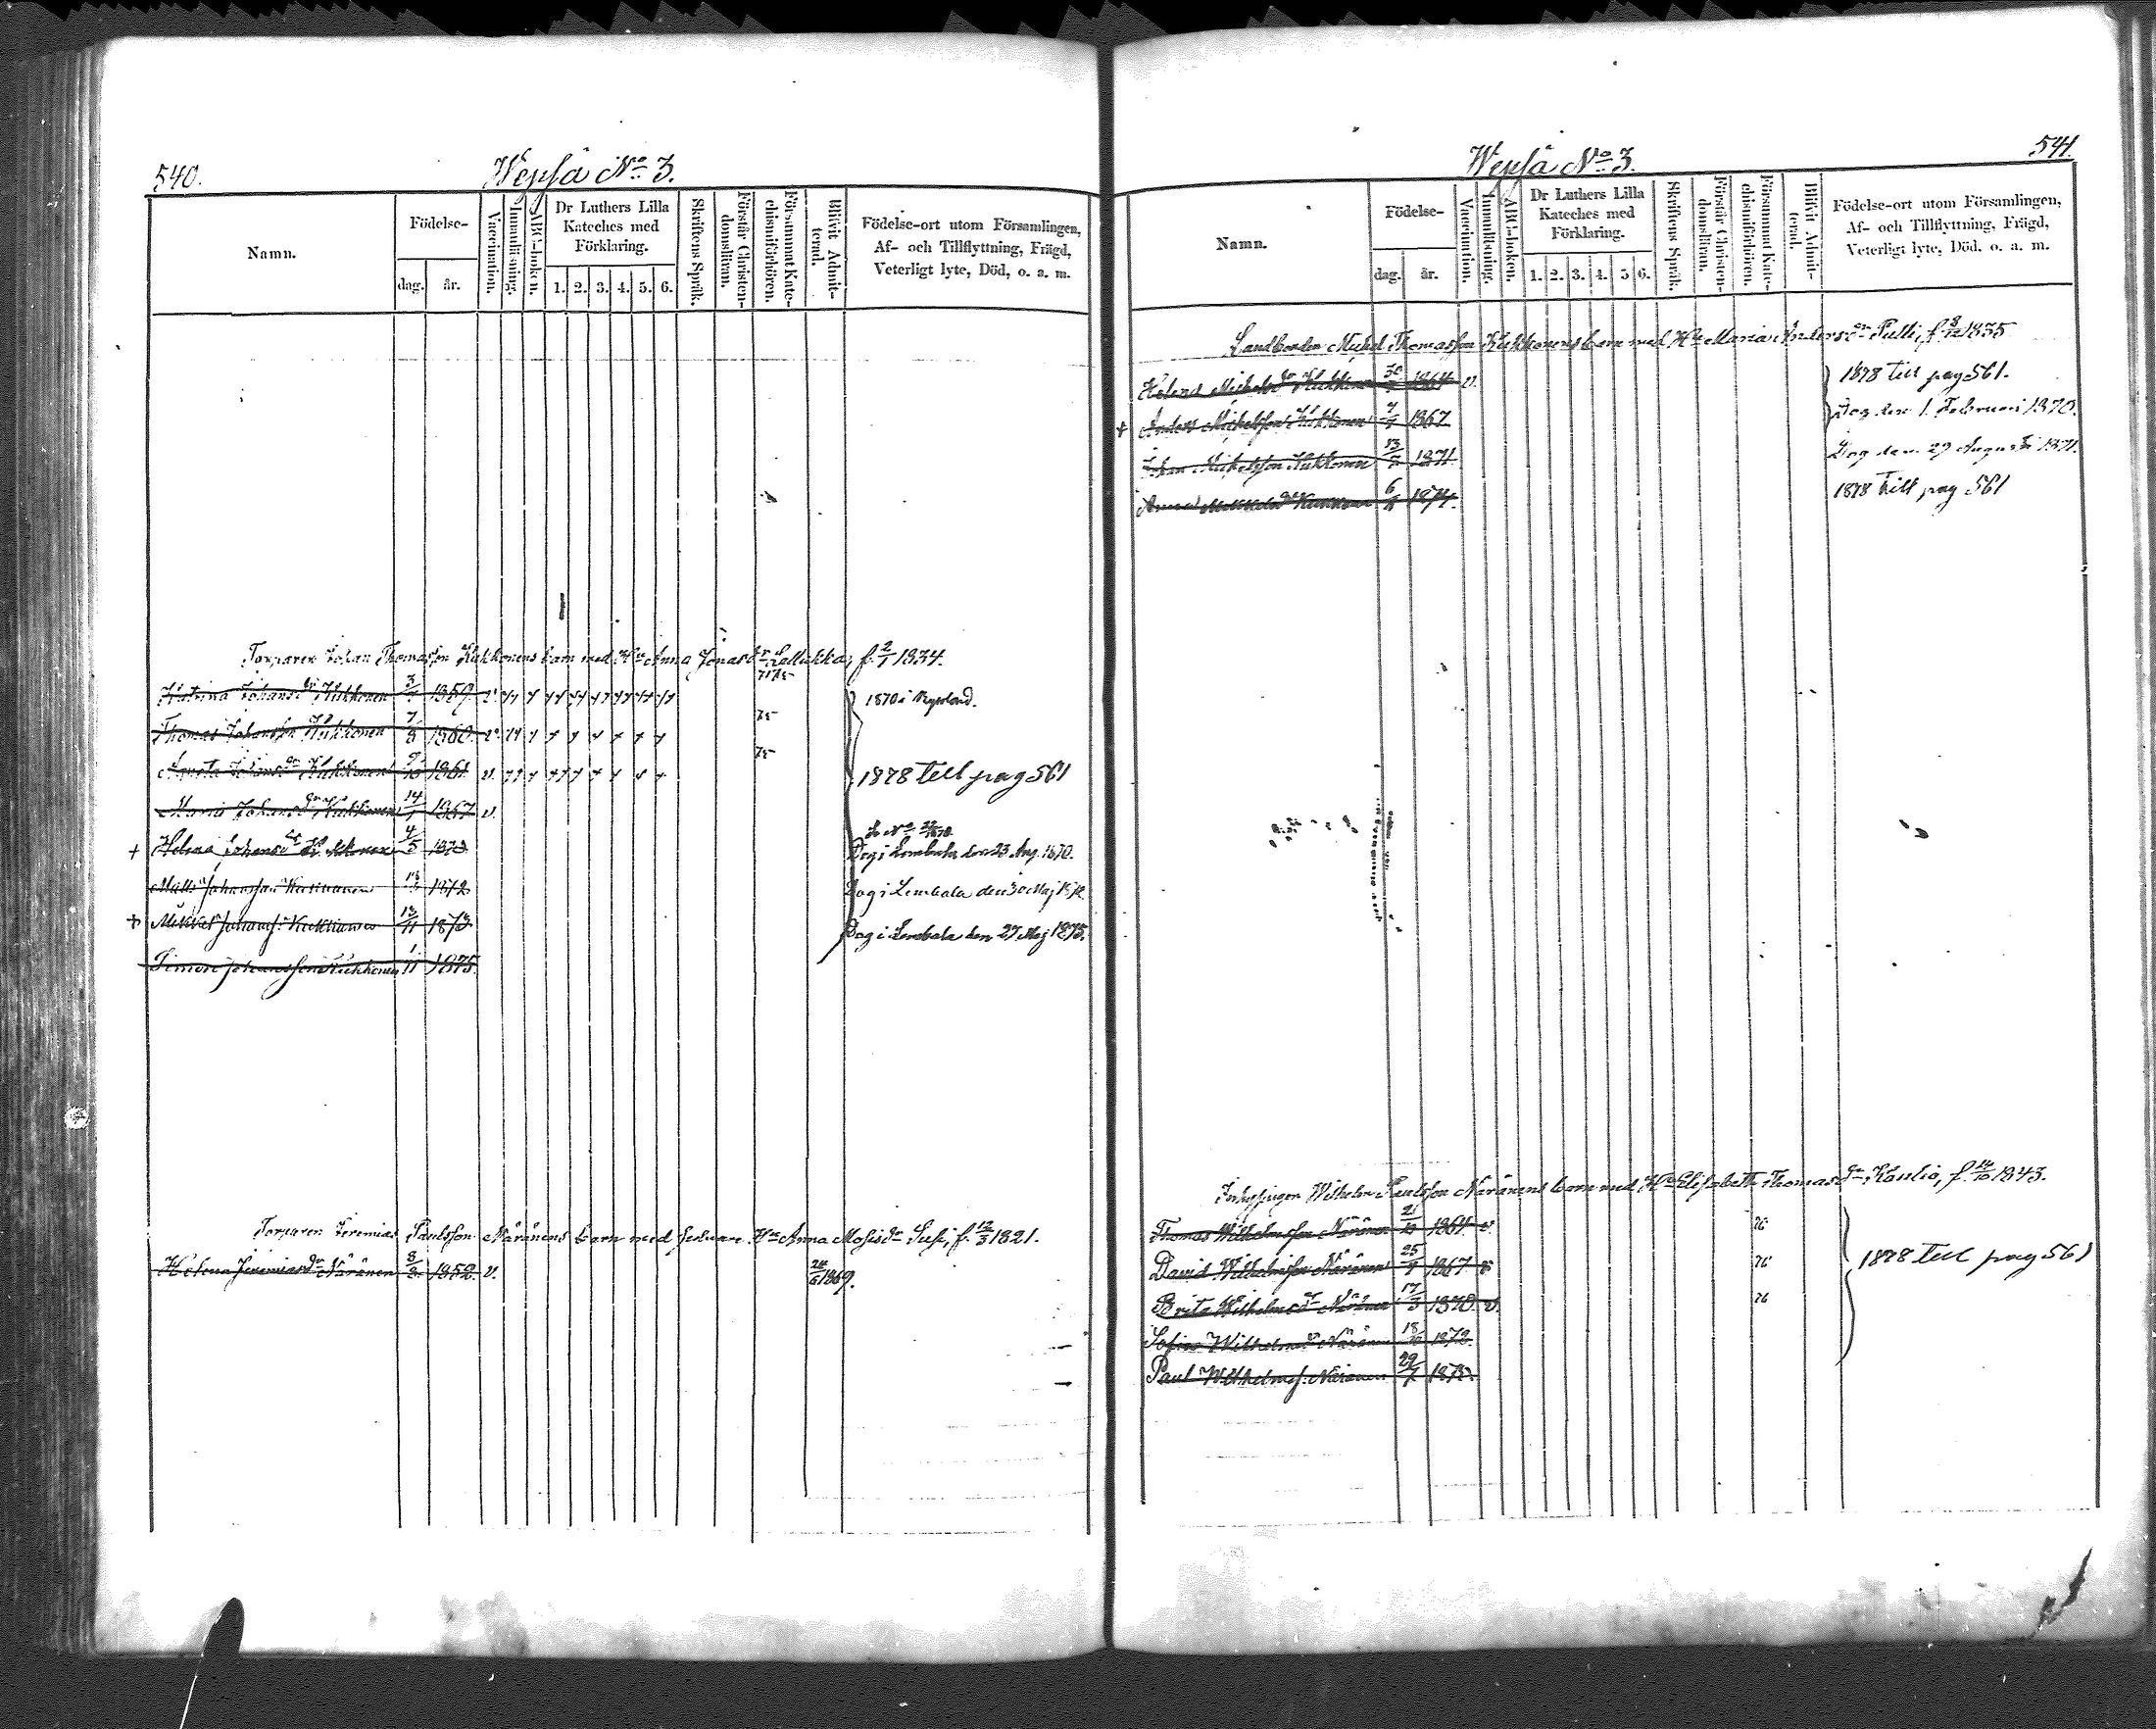 540.
Wepsä No 3.
Namn.
Födelse-
dag.
år.
Vaccination.
Innanläsning.
ABC-boken.
Dr Luthers Lilla
Kateches med
Förklaring.
1. 2. 3. 4. 5. 6.
Skriftens Språk.
Förstår Christen-
domsläran.
Försummat Kate-
chismiförhören.
Blivit Admit-
terad.
Födelse-ort utom Församlingen,
Af- och Tillflyttning, Frägd,
Veterligt lyte, Död, o. a. m.
Torparen Johan Thomasson Kukkonens barn med Hu Anna Jonasdr Lallukka, f. 2/1 1834.
Katrina Johansdr Kukkonen 1859 v.
1870 i Ryssland.
Thomas Johansson Kukkonen 7/8 1860 v. 75
Agneta Johansdr Kukkonen 1861 v. 75
1878 till pag 561
Maria Johansdr Kukkonen 14/1 1867 v.
+ Helena Johansdr Kukkonen 4/5
Dog i Lembala den 23 Aug. 1870.
Matts Johansson Kukkonen 1872
Dog i Lembala den 30 Maj
+ Mikkel Johanss: Kukkonen 1873
Dog i Lembala den 27 Maj 1875.
Simon Johansson Kukkonen 1/11 1875.
Torparen Jeremias Paulsson Näränens barn med Hu Anna Mosisdr Susi, f. 12/3 1821.
Helena Jeremiasdr Näränen 1852 v. 1869.
541.
Wepsä No 3.
Namn.
Födelse-
dag.
år.
Vaccination.
Innanläsning.
ABC-boken.
Dr Luthers Lilla
Kateches med
Förklaring.
1. 2. 3. 4. 5 6.
Skriftens Språk.
Förstår Christen-
domsläran.
Försummat Kate-
chismiförhören.
Blivit Admit-
terad.
Födelse-ort utom Församlingen,
Af- och Tillflyttning, Frägd,
Veterligt lyte, Död. o. a. m.
Landbonden Mickel Thomasson Kukkonens barn med Hu Maria Andersdr Pulli, f. 1835
Helena Michelsdr Kukkonen 1864 v.
1878 till pag 561.
+ Anders Michelsson Kukkonen 1867
Dog den 1. Februari 1870.
Johan Michelsson Kukkonen 1871
Dog den 29 Augusti 1871.
Anna Kukkonen 1874.
1878 till pag 561
Inhysingen Wilhelm Paulsson Näränens barn med Hu Elisabeth Thomasdr Kaulio, f. 1843.
Thomas Wilhelmsson Näränen 1864 v. 76
David Wilhelmsson Näränen 1867 v. 76
1878 till pag 561
Brita Wilhelmsdr Näränen 17/3 1870 v. 76
Sofia Wilhelmsdr Näränen 1872
Paul Wilhelmss: Näränen 29/1